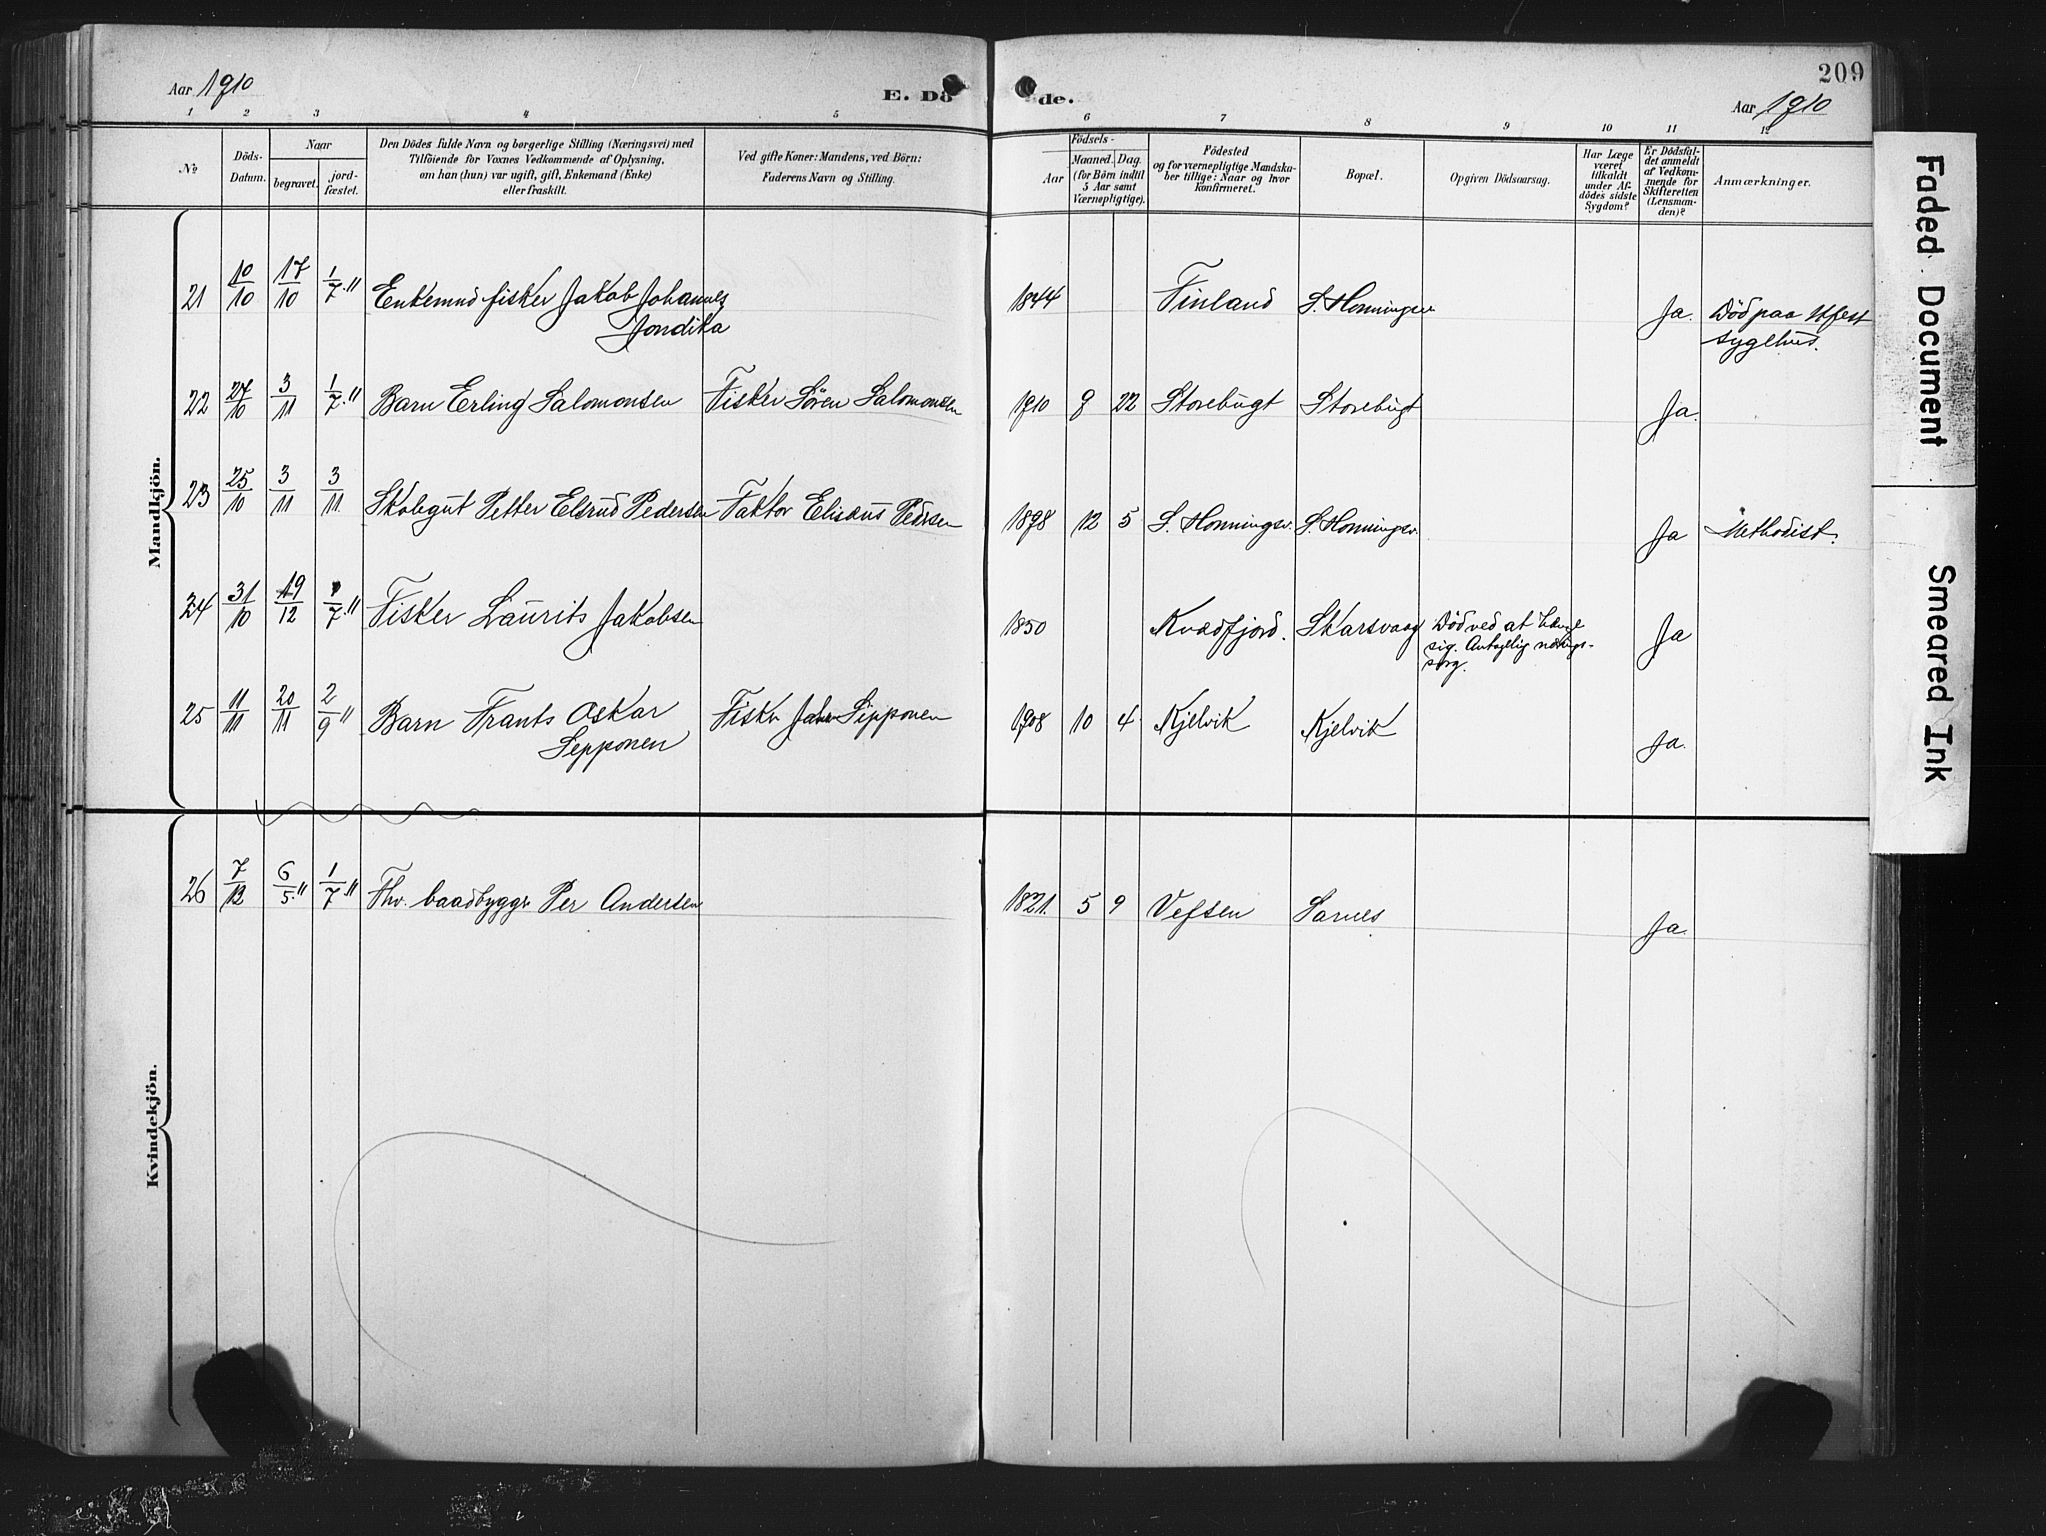 209
Aar 1910
E. Dö
de.
Aar 1910
1 2 3 4 5 6 7 8 9 10 11 12
No
Döds-
Datum.
Naar
begravet.
jord-
fæstet.
Den Dödes fulde Navn og borgerlige Stilling (Næringsvei) med
Tilföiende for Voxnes Vedkommende af Oplysning,
om han (hun) var ugift, gift, Enkemand (Enke)
eller fraskilt.
Ved gifte Koner: Mandens, ved Börn:
Faderens Navn og Stilling.
Födsels-
Aar
Maaned.
Dag.
(for Börn indtil
5 Aar samt
Værnepligtige).
Födested
og for værnepligtige Mandska-
ber tillige: Naar og hvor
konfirmeret.
Bopæl.
Opgiven Dödsaarsag.
Har Læge
været
tilkaldt
under Af-
dödes sidste
Sygdom?
Er Dödsfal-
det anmeldt
af Vedkom-
mende for
Skifteretten
(Lensman-
den)?
Anmærkninger.
Mandkjön.
21 10/10 17/10 1/7 11 Enkemnd fisker Jakob Johannes
Jondika
1844 Finland S. Honningsv Ja. Död paa Hfest
sygehus.
22 27/10 3/11 1/7 11 Barn Erling Salomonsen Fisker Sören Salomonsen 1910 9 22 Storebugt Storebugt Ja.
23 25/10 3/11 3/11 Skolegut Petter Elsrud Pedersen Faktor Elisæus Pedersen 1898 12 5 S. Honningsv. S. Honningsv. Ja Methodist.
24 31/10 19/12 1/7 11 Fisker Laurits Jakobsen 1850 Kvædfjord. Skarsvaag Död ved at hænge
sig. Antagelig nærings-
sorg.
Ja
25 11/11 20/11 2/9 11 Barn Frants Oskar
Sepponen
Fisker Johan Sepponen 1908 10 4 Kjelvik Kjelvik Ja.
Kvindekjön.
26 7/12 6/5 11 1/7 11 Fhv. baadbyggr Per Andersen 1821. 5 9 Vefsen Sarnes Ja.
Faded Document
Smeared Ink